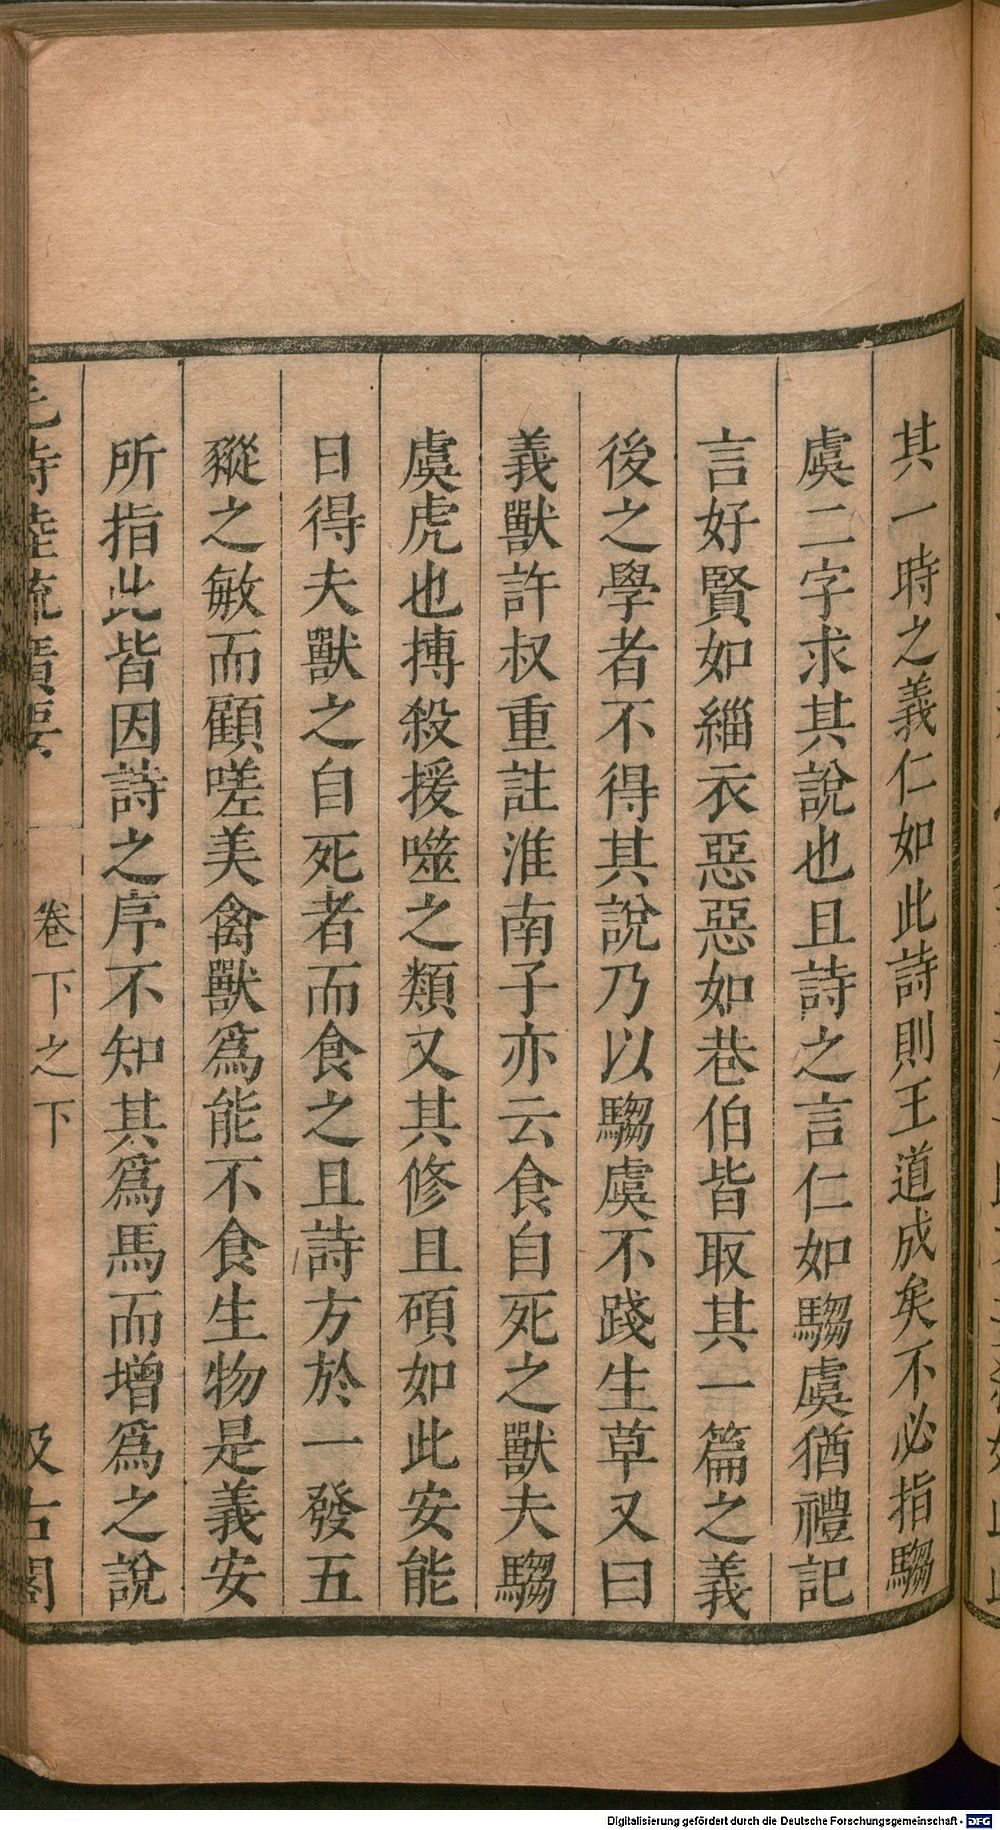 其一時之義仁如此詩則王道成矣不必指騶
虞二字求其說也且詩之言仁如騶虞猶禮記
言好賢如緇衣惡惡如巷伯皆取其一篇之義
後之學者不得其說乃以騶虞不踐生草又曰
義獸許叔重註淮南子亦云食自死之獸夫騶
虞虎也搏殺援噬之類又其修且碩如此安能
日得夫獸之自死者而食之且詩方於一發五
豵之敏而顧嗟美禽獸爲能不食生物是義安
所指此皆因詩之序不知其爲馬而增爲之說
毛詩陸疏廣要 卷下之下 汲古閣
Digitalisierung gefördert durch die Deutsche Forschungsgemeinschaft - DFG